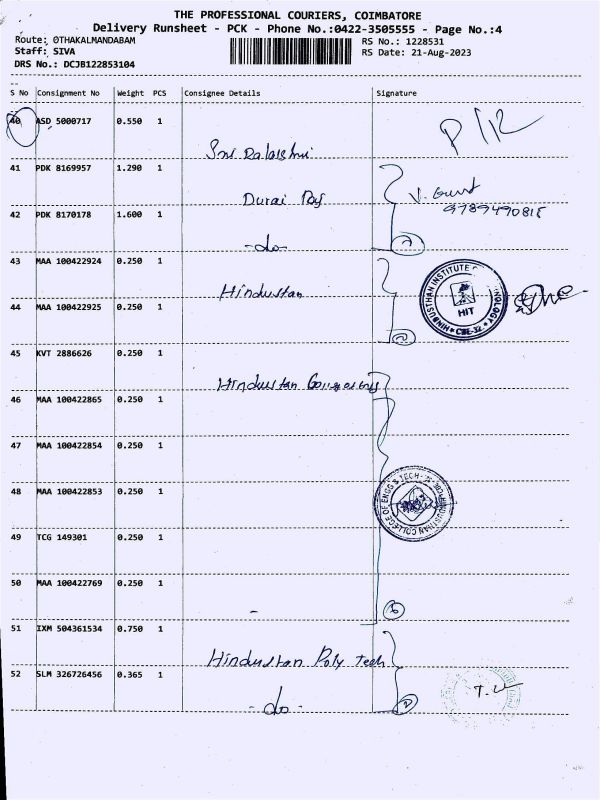 THE PROFESSIONAL COURIERS, COIMBATORE
Delivery Runsheet - PCK - Phone No.:0422-3505555 - Page No.:4
Route: OTHAKALMANDABAM
RS No.: 1228531
Staff: SIVA
RS Date: 21-Aug-2023
DRS No.: DCJB122853104
S No Consignment No Weight PCS Consignee Details Signature
40 ASD 5000717 0.550 1
41 PDK 8169957 1.290 1
Durai
V.
9789490815
42 PDK 8170178 1.600 1
-do-
43 MAA 100422924 0.250 1
Hindustan
HINDUSTHAN INSTITUTE
HIT
CBE-32
44 MAA 100422925 0.250 1
45 KVT 2886626 0.250 1
Hindustan
46 MAA 100422865 0.250 1
47 MAA 100422854 0.250 1
48 MAA 100422853 0.250 1
HINDUSTHAN COLLEGE OF ENGG & TECH
49 TCG 149301 0.250 1
50 MAA 100422769 0.250 1
51 IXM 504361534 0.750 1
Hindustan Poly tech
52 SLM 326726456 0.365 1
-do-